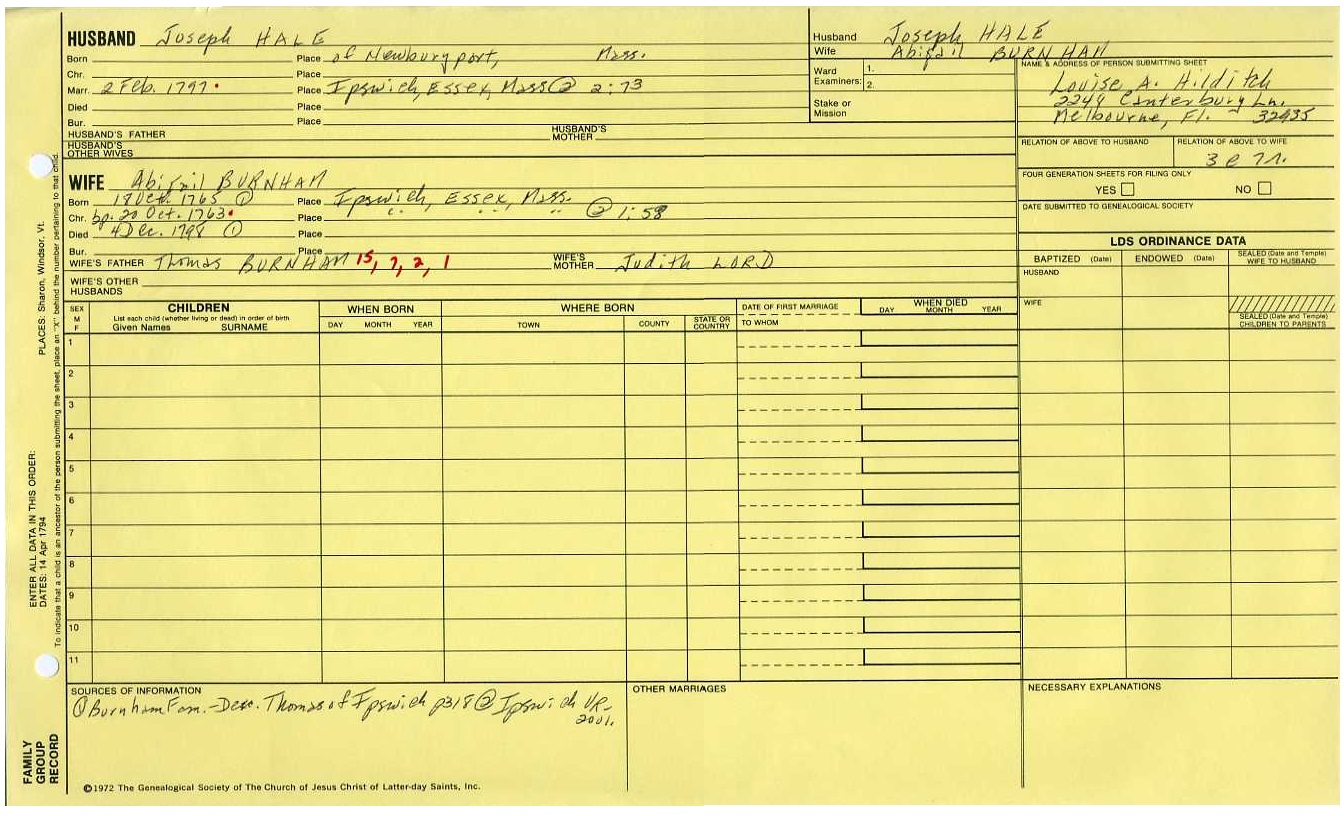 HUSBAND Joseph HALE
Born Place of Newburyport, Mass.
Chr. Place
Marr. 2 Feb. 1797 • Place Ipswich, Essex, Mass ② 2:73
Died Place
Bur. Place
HUSBAND'S FATHER HUSBAND'S MOTHER
HUSBAND'S OTHER WIVES
Husband Joseph HALE
Wife Abigail BURNHAM
Ward Examiners: 1. 2.
Stake or Mission
NAME & ADDRESS OF PERSON SUBMITTING SHEET
Louise A. Hilditch
2249 Canterbury Ln.
Melbourne, Fl. 32935
RELATION OF ABOVE TO HUSBAND RELATION OF ABOVE TO WIFE
FOUR GENERATION SHEETS FOR FILING ONLY
YES NO
DATE SUBMITTED TO GENEALOGICAL SOCIETY
WIFE Abigail BURNHAM
Born 18 Oct. 1765 ① Place Ipswich, Essex, Mass.
Chr. bp. 20 Oct. 1763 • Place " " " ② 1:58
Died 4 Dec. 1798 ① Place
Bur. Place
WIFE'S FATHER Thomas BURNHAM 15, 7, 2, 1 WIFE'S MOTHER Judith LORD
WIFE'S OTHER HUSBANDS
LDS ORDINANCE DATA
BAPTIZED (Date) ENDOWED (Date) SEALED (Date and Temple) WIFE TO HUSBAND
HUSBAND
WIFE
SEALED (Date and Temple) CHILDREN TO PARENTS
SEX M F
CHILDREN
List each child (whether living or dead) in order of birth
Given Names SURNAME
WHEN BORN
DAY MONTH YEAR
WHERE BORN
TOWN COUNTY STATE OR COUNTRY
DATE OF FIRST MARRIAGE
TO WHOM
WHEN DIED
DAY MONTH YEAR
1
2
3
4
5
6
7
8
9
10
11
SOURCES OF INFORMATION
① Burnham Fam. - Desc. Thomas of Ipswich p318 ② Ipswich VR-
OTHER MARRIAGES
NECESSARY EXPLANATIONS
©1972 The Genealogical Society of The Church of Jesus Christ of Latter-day Saints, Inc.
FAMILY GROUP RECORD
ENTER ALL DATA IN THIS ORDER:
DATES: 14 Apr 1794 PLACES: Sharon, Windsor, Vt.
To indicate that a child is an ancestor of the person submitting the sheet, place an "X" behind the number pertaining to that child.